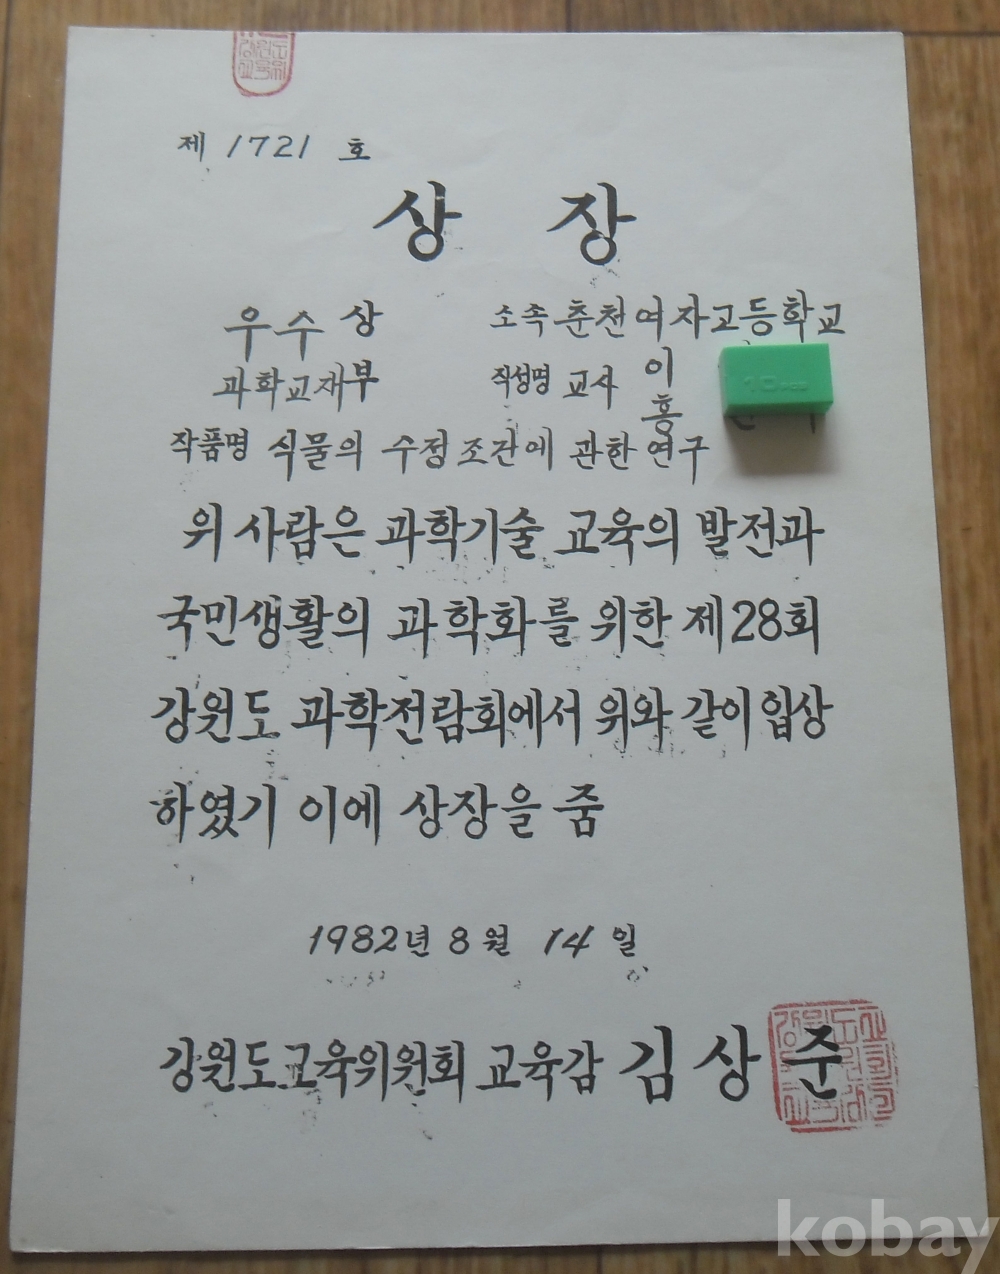 제 1721 호
상 장
우수상 소속 춘천여자고등학교
과학교재부 작성명 교사 이
홍
작품명 식물의 수정조간에 관한 연구
위 사람은 과학기술 교육의 발전과
국민생활의 과학화를 위한 제28회
강원도 과학전람회에서 위와 같이 입상
하였기 이에 상장을 줌
1982년 8월 14일
강원도교육위원회 교육감 김상준
10
kobay